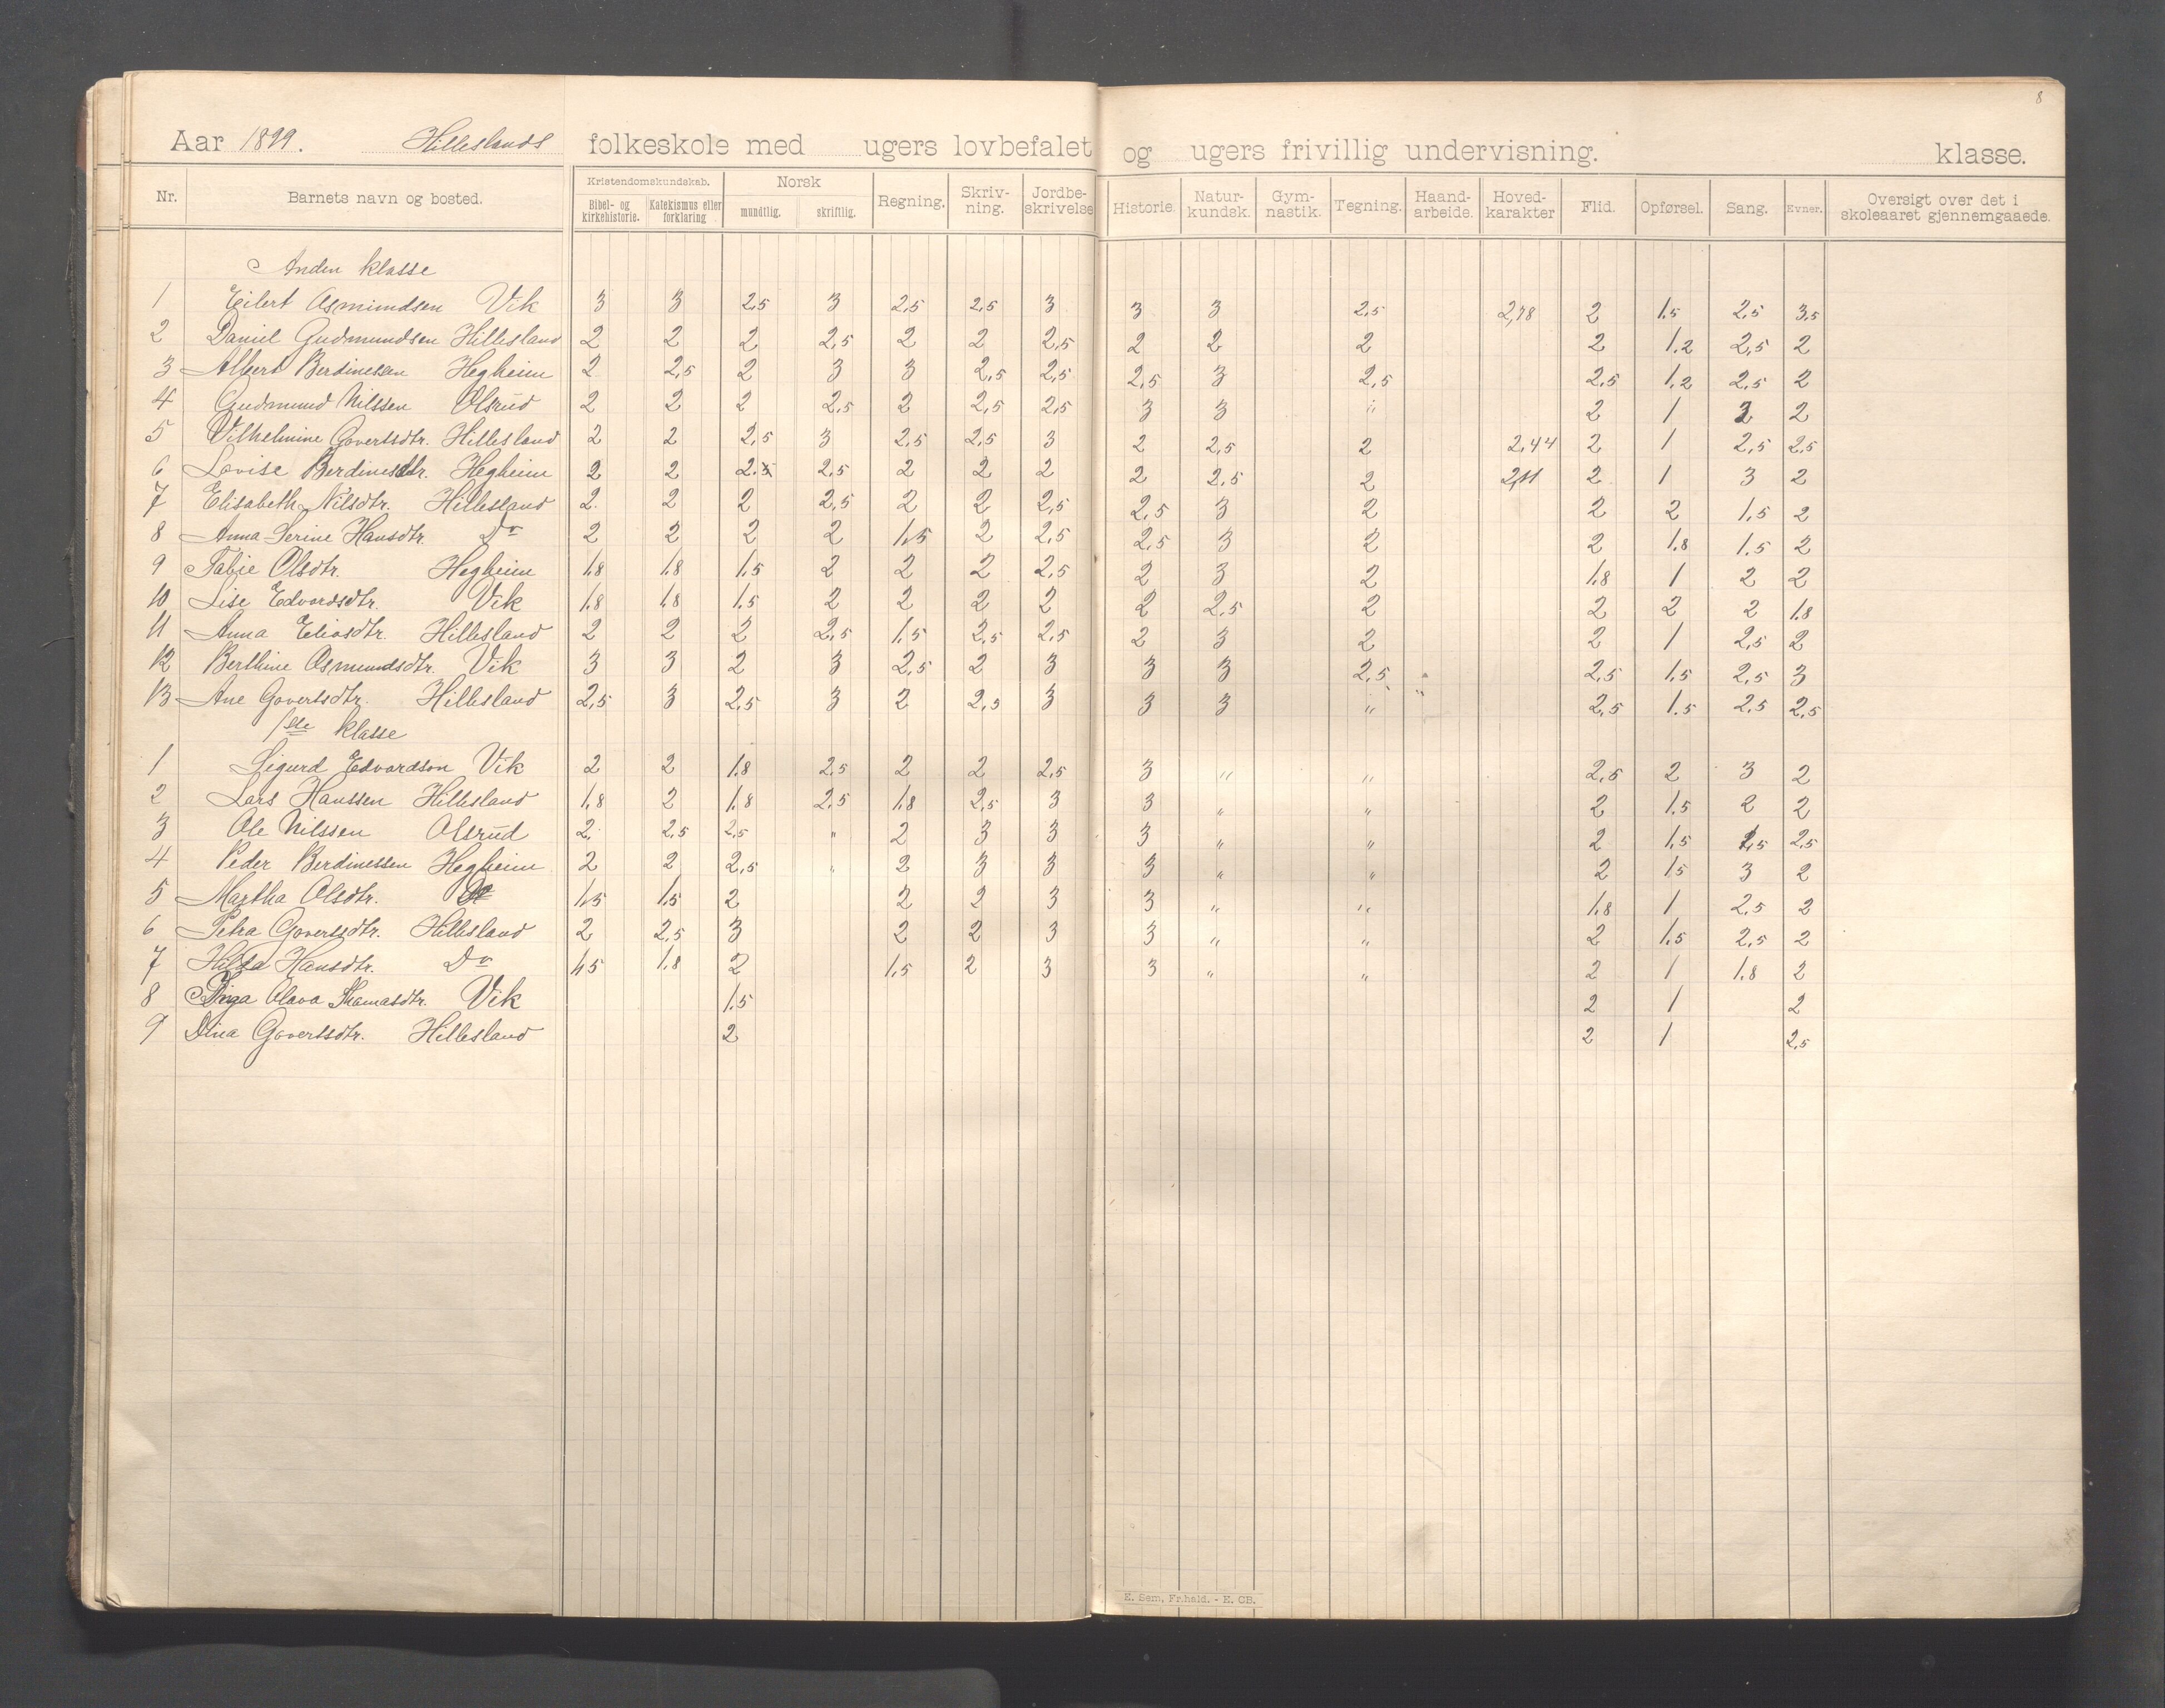 8
Aar 1899. Hilleslands folkeskole med ugers lovbefalet og ugers frivillig undervisning. klasse.
Nr. Barnets navn og bosted. Kristendomskundskab. Bibel- og kirkehistorie. Katekismus eller forklaring Norsk mundtlig. skriftlig. Regning. Skriv-ning. Jordbe-skrivelse Historie. Natur-kundsk. Gym-nastik. Tegning. Haand-arbeide. Hoved-karakter Flid. Opførsel. Sang. Evner. Oversigt over det i skoleaaret gjennemgaaede.
Anden klasse
1 Eilert Asmundsen Vik 3 3 2,5 3 2,5 2,5 3 3 3 2,5 2,78 2 1.5 2,5 3,5
2 Daniel Gudmundsen Hillesland 2 2 2 2,5 2 2 2,5 2 2 2 2 1.2 2,5 2
3 Albert Berdinessen Hegheim 2 2,5 2 3 3 2,5 2,5 2,5 3 2,5 2,5 1,2 2,5 2
4 Gudmund Nilssen Olsrud 2 2 2 2,5 2 2,5 2,5 3 3 " 2 1 2 2
5 Vilhelmine Govertsdtr. Hillesland 2 2 2,5 3 2,5 2,5 3 2 2,5 2 2,44 2 1 2,5 2,5
6 Lovise Berdinesdtr. Hegheim 2 2 2.5 2,5 2 2 2 2 2,5 2 2,11 2 1 3 2
7 Elisabeth Nilsdtr. Hillesland 2. 2 2 2,5 2 2 2,5 2,5 3 2 2 2 1,5 2
8 Anna Serine Hansdtr. Do 2 2 2 2 1,5 2 2,5 2,5 3 2 2 1.8 1.5 2
9 Tabie Olsdtr. Hegheim 1,8 1,8 1,5 2 2 2 2,5 2 3 2 1,8 1 2 2
10 Lise Edvardsdtr. Vik 1,8 1,8 1,5 2 2 2 2 2 2,5 2 2 2 2 1,8
11 Anna Eliasdtr. Hillesland 2 2 2 2,5 1,5 2,5 2,5 2 3 2 2 1 2,5 2
12 Berthine Asmundsdtr. Vik 3 3 2 3 2,5 2 3 3 3 2,5 " 2,5 1,5 2,5 3
13 Ane Govertsdtr. Hillesland 2,5 3 2,5 3 2 2,5 3 3 3 " " 2,5 1.5 2,5 2,5
1ste klasse
1 Sigurd Edvardson Vik 2 2 1,8 2,5 2 2 2,5 3 " " 2,5 2 3 2
2 Lars Hanssen Hillesland 1,8 2 1,8 2,5 1,8 2,5 3 3 " " 2 1.5 2 2
3 Ole Nilssen Olsrud 2. 2,5 2,5 " 2 3 3 3 " " 2 1,5 2,5 2,5
4 Peder Berdinessen Hegheim 2 2 2,5 " 2 3 3 3 " " 2 1.5 3 2
5 Martha Olsdtr. Do 1,5 1,5 2 2 2 3 3 " " 1,8 1 2,5 2
6 Petra Govertsdtr. Hillesland 2 2,5 3 2 2 3 3 " " 2 1,5 2,5 2
7 Hilda Hansdtr. Do 1,5 1,8 2 1,5 2 3 3 " " 2 1 1,8 2
8 Inga Olava Thomasdtr. Vik 1.5 2 1 2
9 Dina Govertsdtr. Hillesland 2 2 1 2,5
E. Sem, Fr.hald. - E. CB.